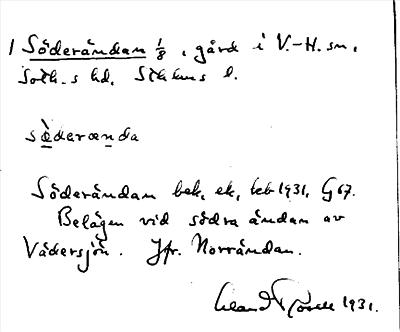 1 Söderändan 1/8, gård i V.-H. sn,
Soth.s hd, Sthlms l.
sö̀derända
Söderändan bek, ek, keb 1931, G 67.
Belägen vid södra ändan av
Vädersjön. Jfr. Norrändan.
1931.